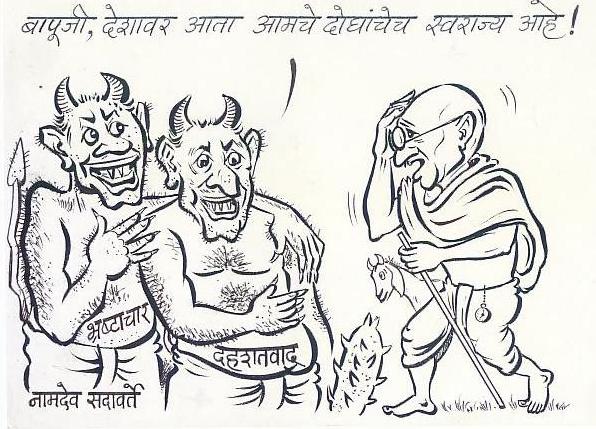 बापूजी, देशावर आता आमचे दोघांचेच स्वराज्य आहे!
भ्रष्टाचार
दहशतवाद
नामदेव सदावर्ते